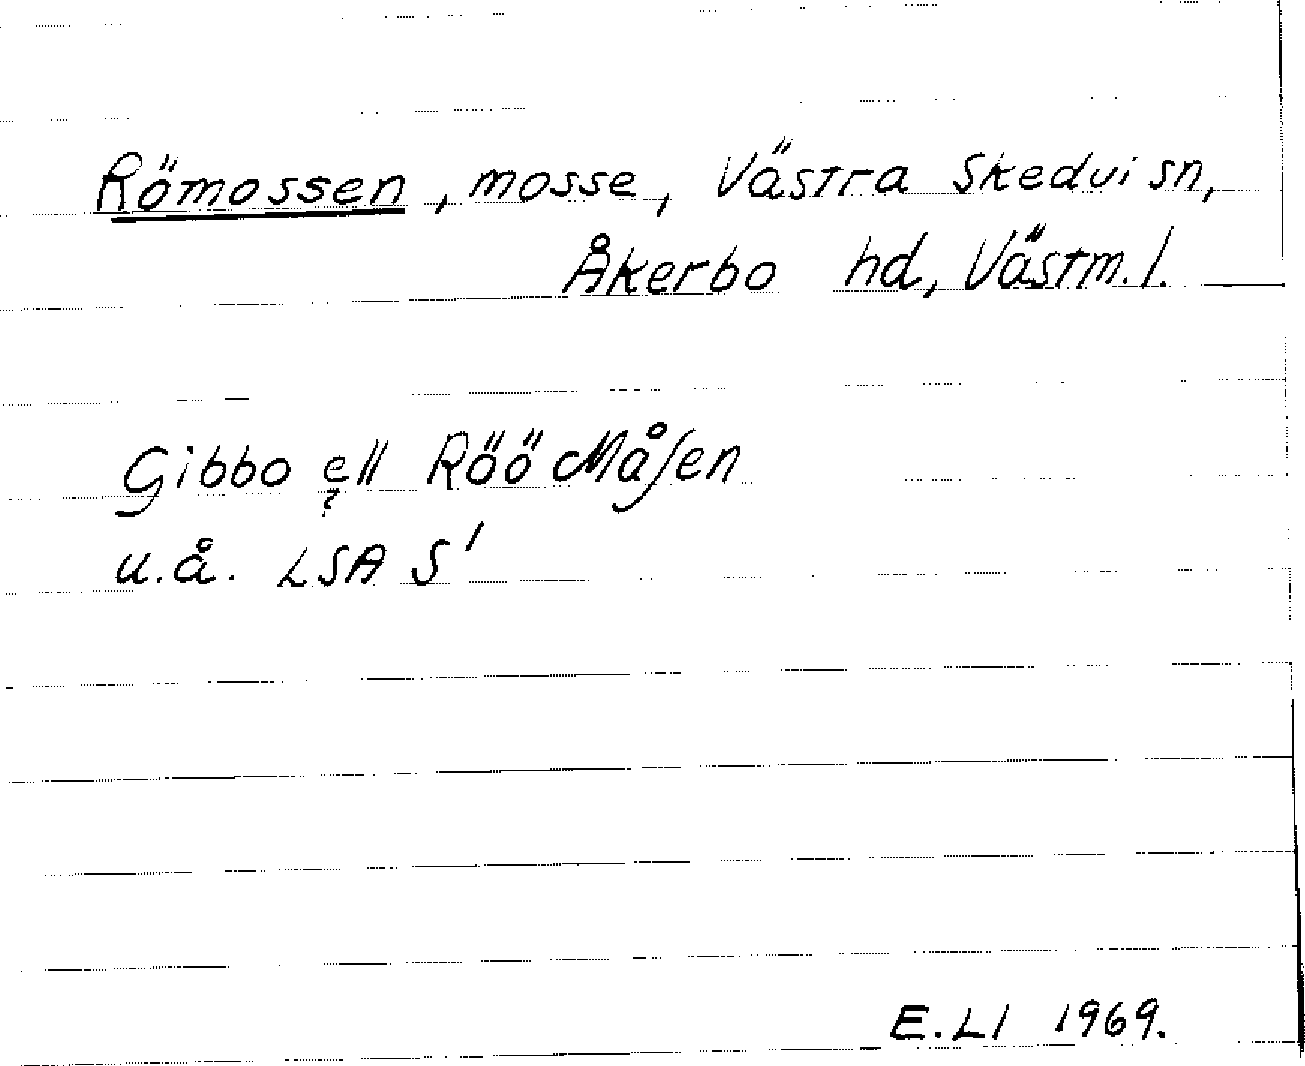 Römossen, mosse, Västra Skedvi sn,
Åkerbo hd, Västm. l.
Gibbo ell Röö Måsen
?
u.å. LSA S1
E. LI 1969.